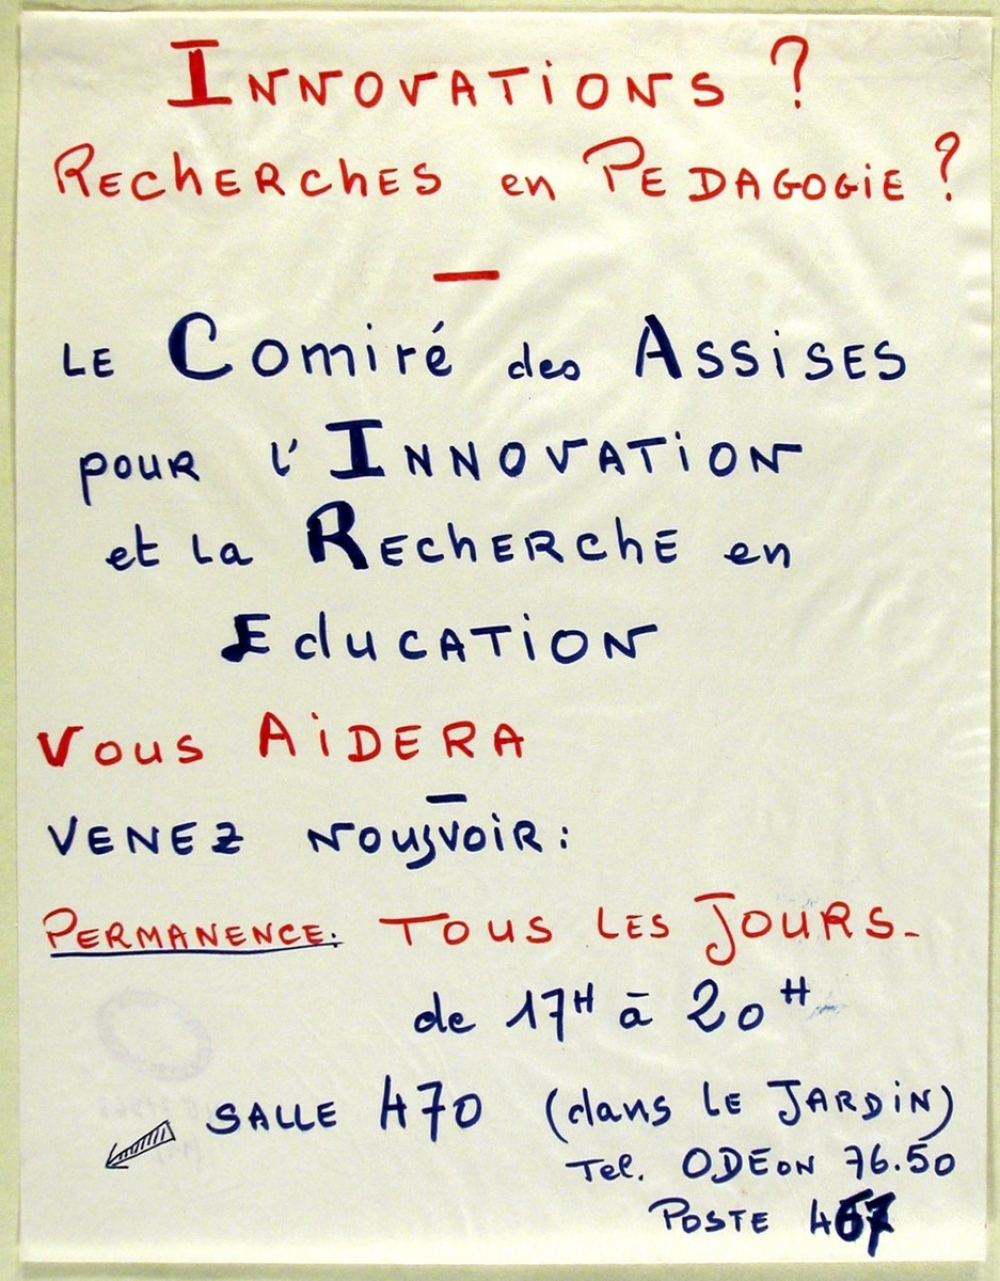 INNOVATiONS ?
RECHERCHES en PEDAGOGiE ?
LE Comiré des ASSiSES
pouR l'INNOVATiON
et la RECHERCHE en
EduCATiON
Vous AiDERA
VENEZ NousvoiR :
PERMANENCE: TOUS LES JOURS.
de 17H à 20H
SALLE 470 (dans LE JARDiN)
Tel. ODEON 76.50
POSTE 467